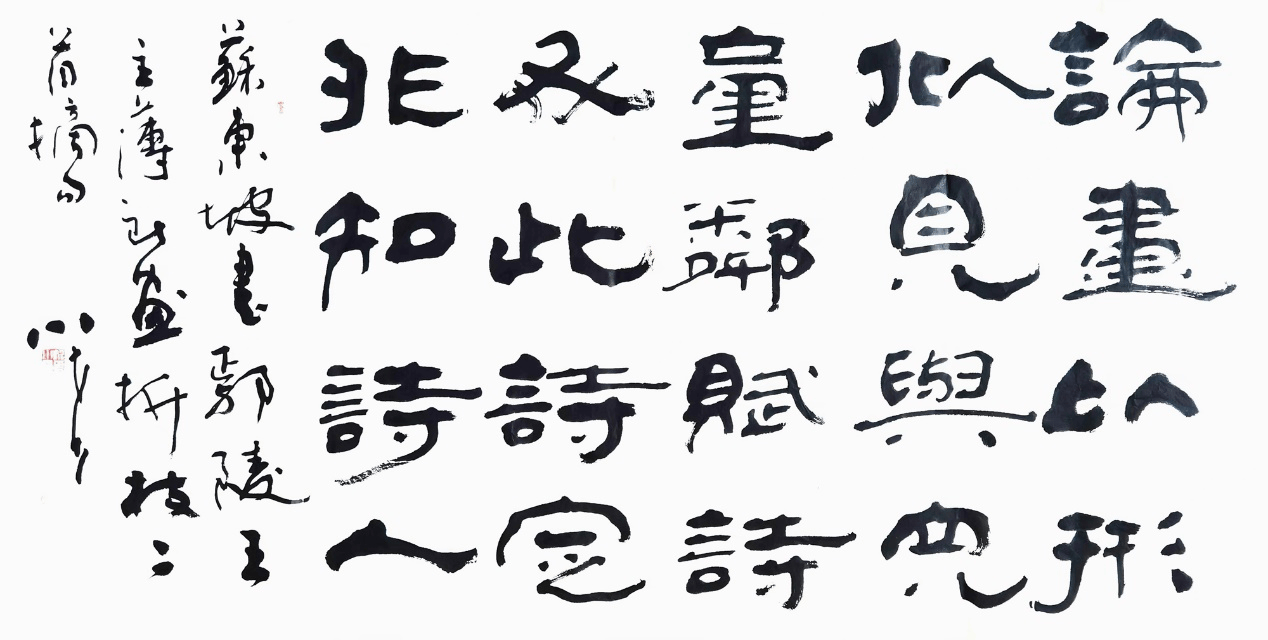 論畫以形
似見與兒
童鄰賦詩
必此詩定
非知詩人
蘇東坡書鄢陵王
主薄所画折枝二
首摘句